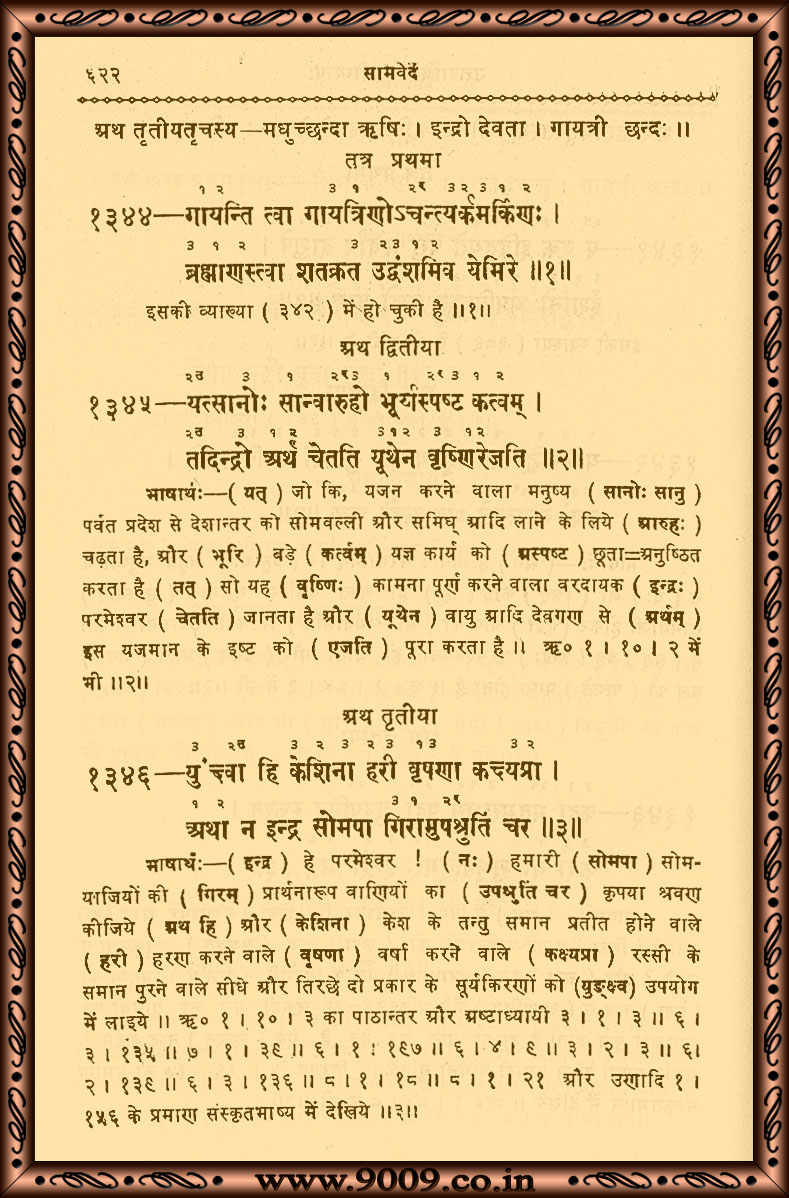 ६२२ सामवेद
अथ तृतीयतृचस्य—मधुच्छन्दा ऋषिः । इन्द्रो देवता । गायत्री छन्दः ॥
तत्र प्रथमा
१ २ ३ १ २र ३ २ ३ १ २
१३४४—गायन्ति त्वा गायत्रिणोऽचन्त्यर्कमर्किणः ।
३ १ २ ३ २३ १ २
ब्रह्माणस्त्वा शतक्रत उद्वंशमिव येमिरे ॥१॥
इसकी व्याख्या ( ३४२ ) में हो चुकी है ॥१॥
अथ द्वितीया
२उ ३ १ २र३ १ २र३ १ २
१३४५—यत्सानोः सान्वारुहो भूर्यस्पष्ट कत्वम् ।
२उ ३ १ २ ३१२ ३ १२
तदिन्द्रो अर्थं चेतति यूथेन वृष्णिरेजति ॥२॥
भाषार्थः—( यत् ) जो कि, यजन करने वाला मनुष्य ( सानोः सानु )
पर्वत प्रदेश से देशान्तर को सोमवल्ली और समिध् आदि लाने के लिये ( आरुहः )
चढ़ता है, और ( भूरि ) बड़े ( कर्त्वम् ) यज्ञ कार्य को ( अस्पष्ट ) छूता=अनुष्ठित
करता है ( तत् ) सो यह ( वृष्णिः ) कामना पूर्ण करने वाला वरदायक ( इन्द्रः )
परमेश्वर ( चेतति ) जानता है और ( यूथेन ) वायु आदि देवगण से ( अर्थम् )
इस यजमान के इष्ट को ( एजति ) पूरा करता है ॥ ऋ० १ । १० । २ में
भी ॥२॥
अथ तृतीया
३ २उ ३ २ ३ २ ३ १३ ३ २
१३४६—युंक्ष्वा हि केशिना हरी वृषणा कक्ष्यप्रा ।
१ २ ३ १ २र
अथा न इन्द्र सोमपा गिरामुपश्रुतिं चर ॥३॥
भाषार्थः—( इन्द्र ) हे परमेश्वर ! ( नः ) हमारी ( सोमपा ) सोम-
याजियों की ( गिरम् ) प्रार्थनारूप वाणियों का ( उपश्रुतिं चर ) कृपया श्रवण
कीजिये ( अथ हि ) और ( केशिना ) केश के तन्तु समान प्रतीत होने वाले
( हरी ) हरण करने वाले ( वृषणा ) वर्षा करने वाले ( कक्ष्यप्रा ) रस्सी के
समान पुरने वाले सीधे और तिरछे दो प्रकार के सूर्यकिरणों को (युङ्क्ष्व) उपयोग
में लाइये ॥ ऋ० १ । १० । ३ का पाठान्तर और अष्टाध्यायी ३ । १ । ३ ॥ ६ ।
३ । १३५ ॥ ७ । १ । ३९ ॥ ६ । १ । १९७ ॥ ६ । ४ । ९ ॥ ३ । २ । ३ ॥ ६।
२ । १३९ ॥ ६ । ३ । १३६ ॥ ८ । १ । १८ ॥ ८ । १ । २१ और उणादि १ ।
१५६ के प्रमाण संस्कृतभाष्य में देखिये ॥३॥
www.9009.co.in